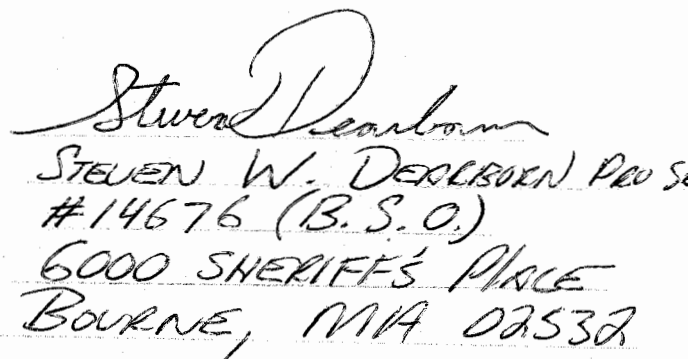 Steven Dearborn
STEVEN W. DEARBORN PRO SE
#14676 (B.S.O.)
6000 SHERIFF'S PLACE
BOURNE, MA 02532